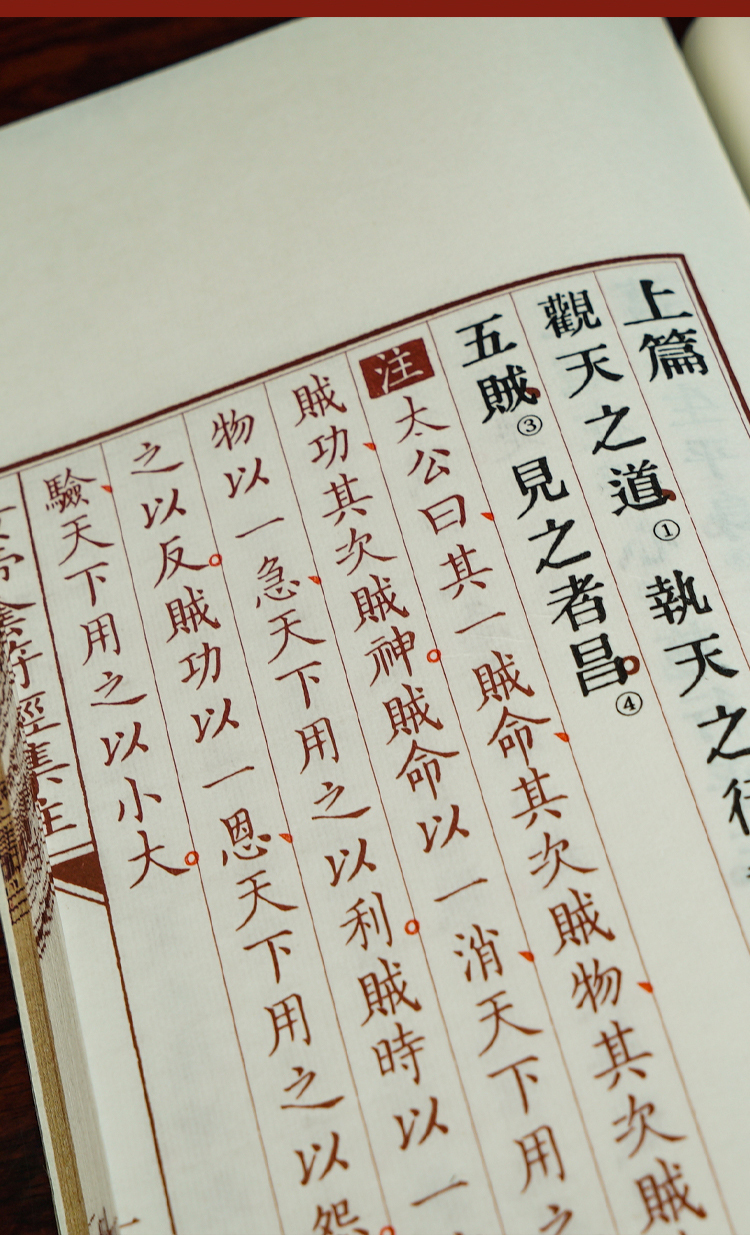 上篇
觀天之道、①執天之
五賊、③見之者昌。④
注太公曰、其一賊命、其次賊物、其次賊
賊功、其次賊神。賊命以一消、天下用之
物以一急、天下用之以利。賊時以一
之以反。賊功以一恩、天下用之以怨。
驗、天下用之以小大。
符經集注